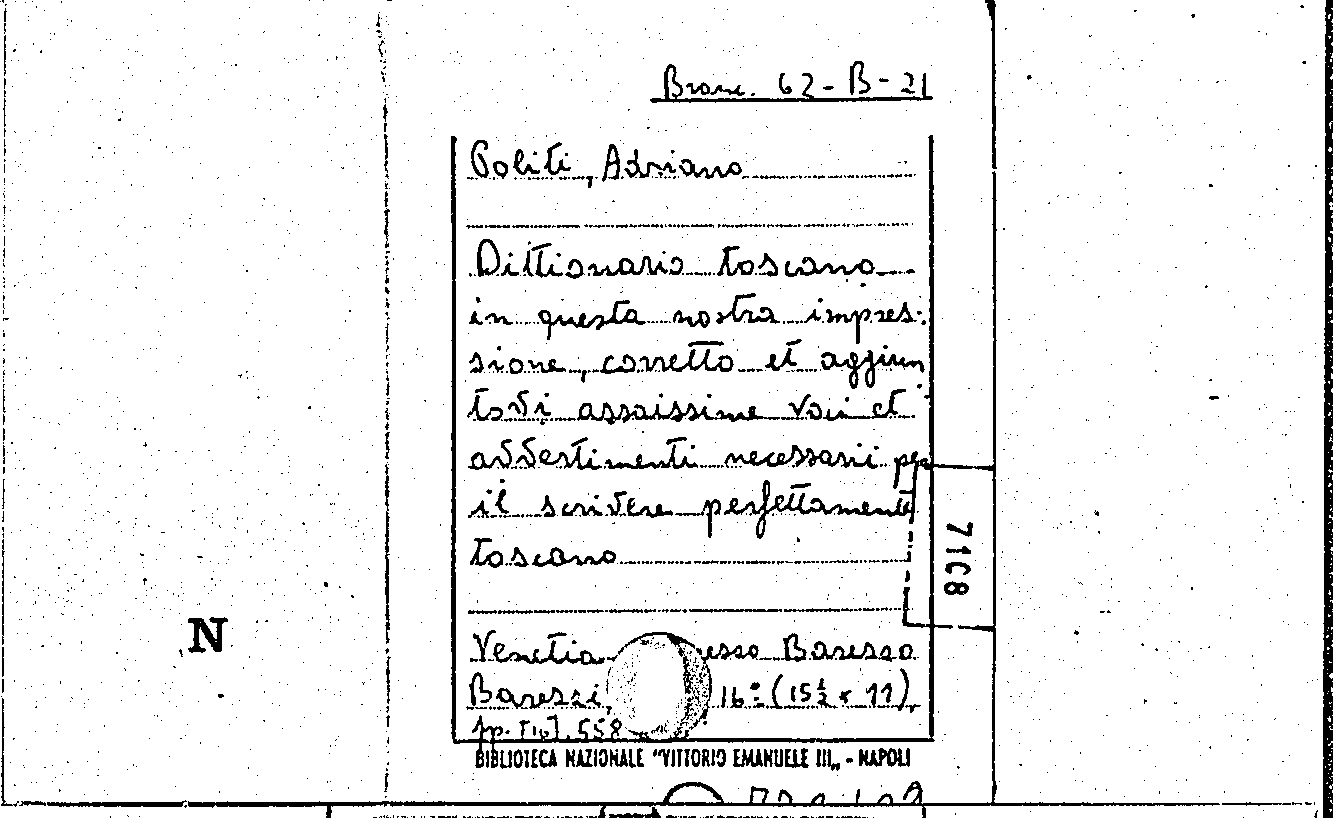 Branc. 62-B-21
Politi, Adriano
Dittionario toscano
in questa nostra impres:
sione, corretto et aggiun
tovi assaissime voci et
avvertimenti necessarii per
il scrivere perfettamente
toscano
7108
N
Venetia esso Barezzo
Barezzi, 16º (15½ x 11),
pp. 558
BIBLIOTECA NAZIONALE "VITTORIO EMANUELE III„ - NAPOLI